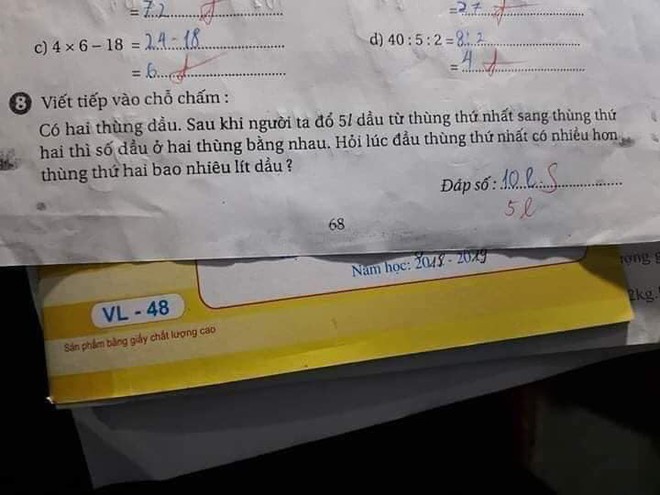 = 72
= 27
c) 4 × 6 – 18 = 24 - 18
d) 40 : 5 : 2 = 8 : 2
= 6
= 4
8 Viết tiếp vào chỗ chấm :
Có hai thùng dầu. Sau khi người ta đổ 5l dầu từ thùng thứ nhất sang thùng thứ
hai thì số dầu ở hai thùng bằng nhau. Hỏi lúc đầu thùng thứ nhất có nhiều hơn
thùng thứ hai bao nhiêu lít dầu ?
Đáp số : 10 l S
5 l
68
Năm học: 2018 - 2019
VL - 48
Sản phẩm bằng giấy chất lượng cao
2kg.